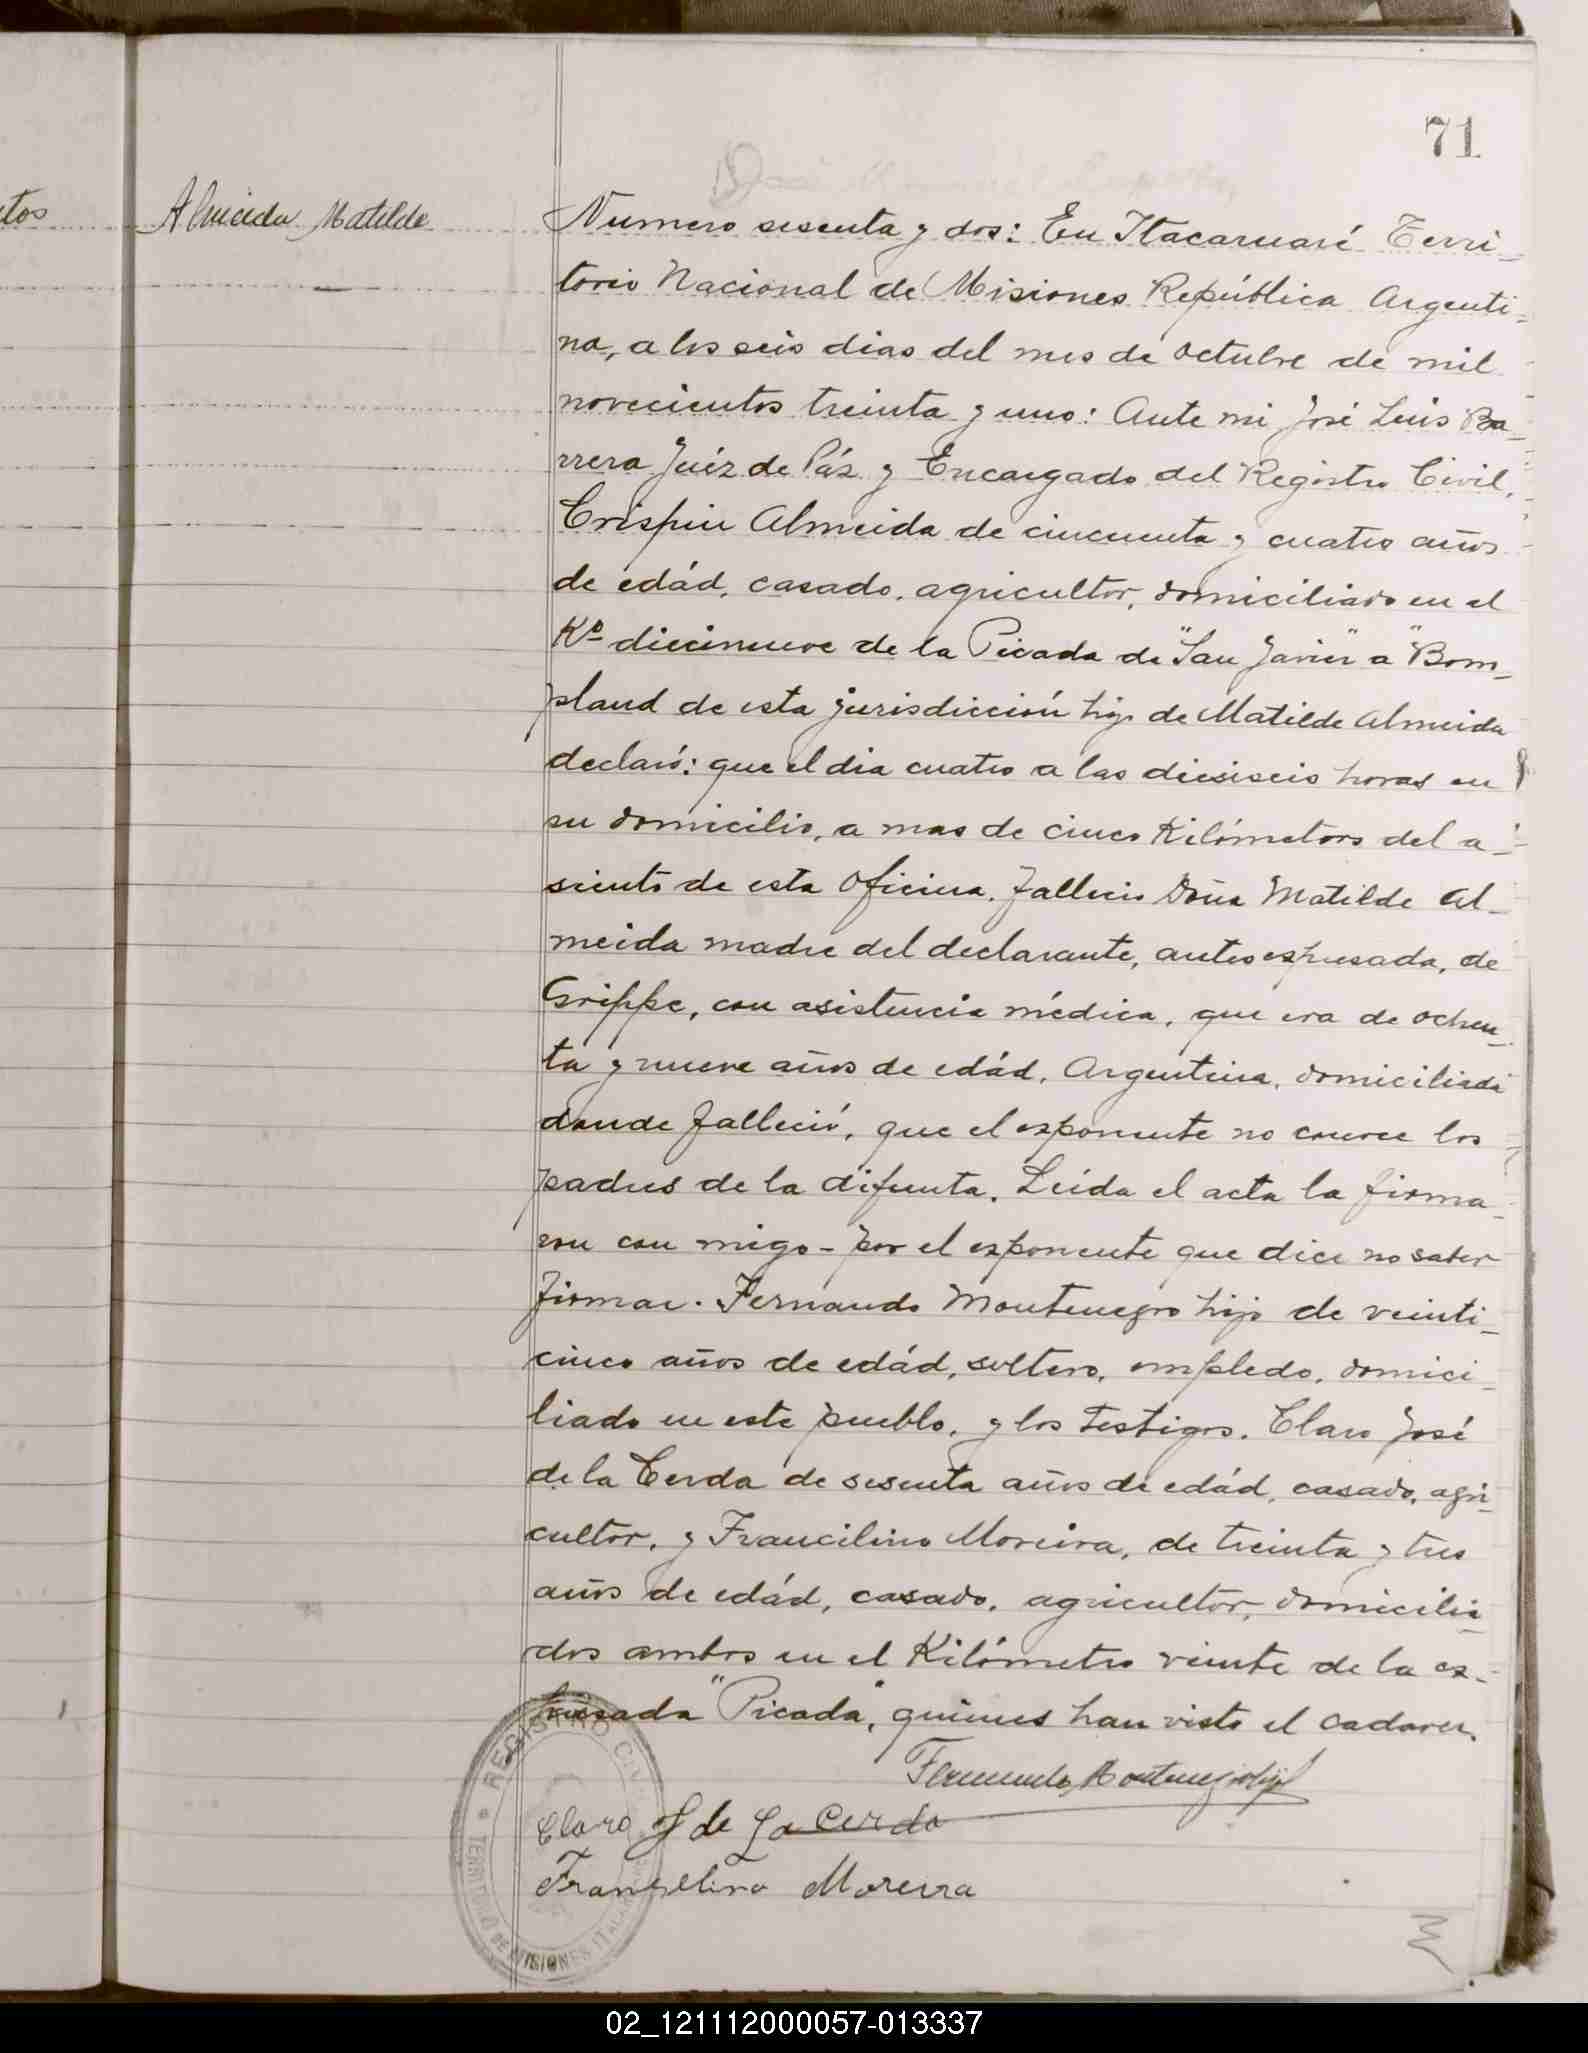 71
tos
Almeida Matilde
Numero sesenta y dos: En Itacaruaré Terri-
torio Nacional de Misiones República Argenti-
na, a los seis dias del mes de octubre de mil
novecientos treinta y uno: Ante mi José Luis Ba-
rrera Juéz de Páz y Encargado del Registro Civil,
Crispin Almeida de cincuenta y cuatro años
de edád, casado, agricultor, domiciliado en el
Kº diecinueve de la Picada de "San Javier" a "Bom-
pland de esta jurisdicción hijo de Matilde Almeida
declaró: que el dia cuatro a las diesiseis horas en
su domicilio, a mas de cinco Kilómetros del a-
siento de esta oficina, falleció Doña Matilde Al-
meida madre del declarante, antes espresada, de
Grippe, con asistencia médica, que era de ochen-
ta y nueve años de edád, Argentina, domiciliada
donde falleció, que el esponente no conoce los
padres de la difunta. Leida el acta la firma-
ron con migo - por el esponente que dice no saber
firmar. Fernando Montenegro hijo de veinti-
cinco años de edád, soltero, empledo, domici-
liado en este pueblo, y los testigos. Claro José
de la Cerda de sesenta años de edád, casado, agri-
cultor, y Francilino Moreira, de treinta y tres
años de edád, casado, agricultor, domicilia-
dos ambos en el Kilómetro veinte de la es-
presada "Picada", quienes han visto el cadaver.
Fernando Montenegro hijo
Claro J de La Cerda
Franselino Moreira
REGISTRO CIVIL
TERRITORIO DE MISIONES
02_121112000057-013337